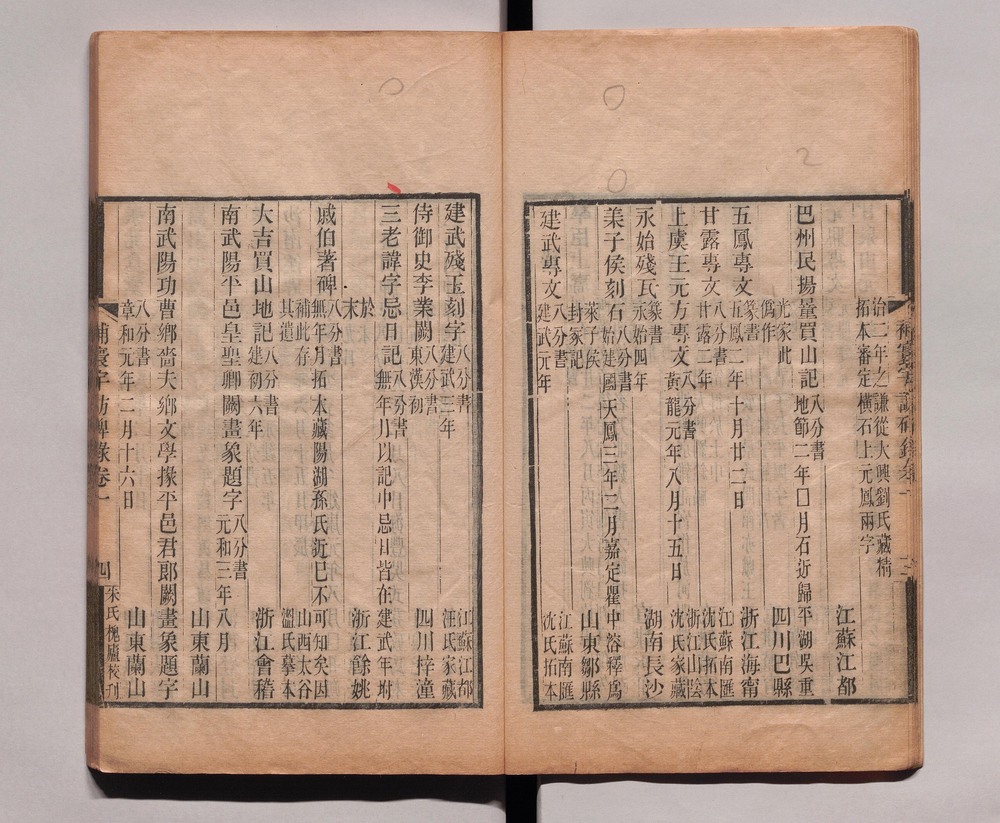 治二年之謙從大興劉氏藏精
拓本審定橫石上元鳳兩字
江蘇江都
巴州民揚量買山記
八分書
地節二年囗月石近歸平湖吳重
光家此
僞作
四川巴縣
五鳳專文
篆書
五鳳二年十月廿二日
浙江海甯
甘露專文
八分書
甘露二年
江蘇南匯
沈氏拓本
上虞王元方專文
八分書
黃龍元年八月十五日
浙江山陰
沈氏家藏
永始殘瓦
篆書
永始四年
湖南長沙
萊子侯刻石
八分書
始建國天鳳三年二月嘉定瞿中溶釋爲
萊子侯
封冢記
山東鄒縣
建武專文
八分書
建武元年
江蘇南匯
沈氏拓本
建武殘玉刻字
八分書
建武三年
江蘇江都
汪氏家藏
侍御史李業闕
八分書
東漢初
四川梓潼
三老諱字忌日記
八分書
無年月以記中忌日皆在建武年坿
於
末
浙江餘姚
戚伯著碑
八分書
無年月拓本藏陽湖孫氏近已不可知矣因
補此存
其遺
山西太谷
溫氏摹本
大吉買山地記
八分書
建初六年
浙江會稽
南武陽平邑皇聖卿闕畫象題字
八分書
元和三年八月
山東蘭山
南武陽功曹鄉嗇夫鄉文學掾平邑君郎闕畫象題字
八分書
章和元年二月十六日
山東蘭山
補寰宇訪碑錄卷一
四
朱氏槐廬校刊